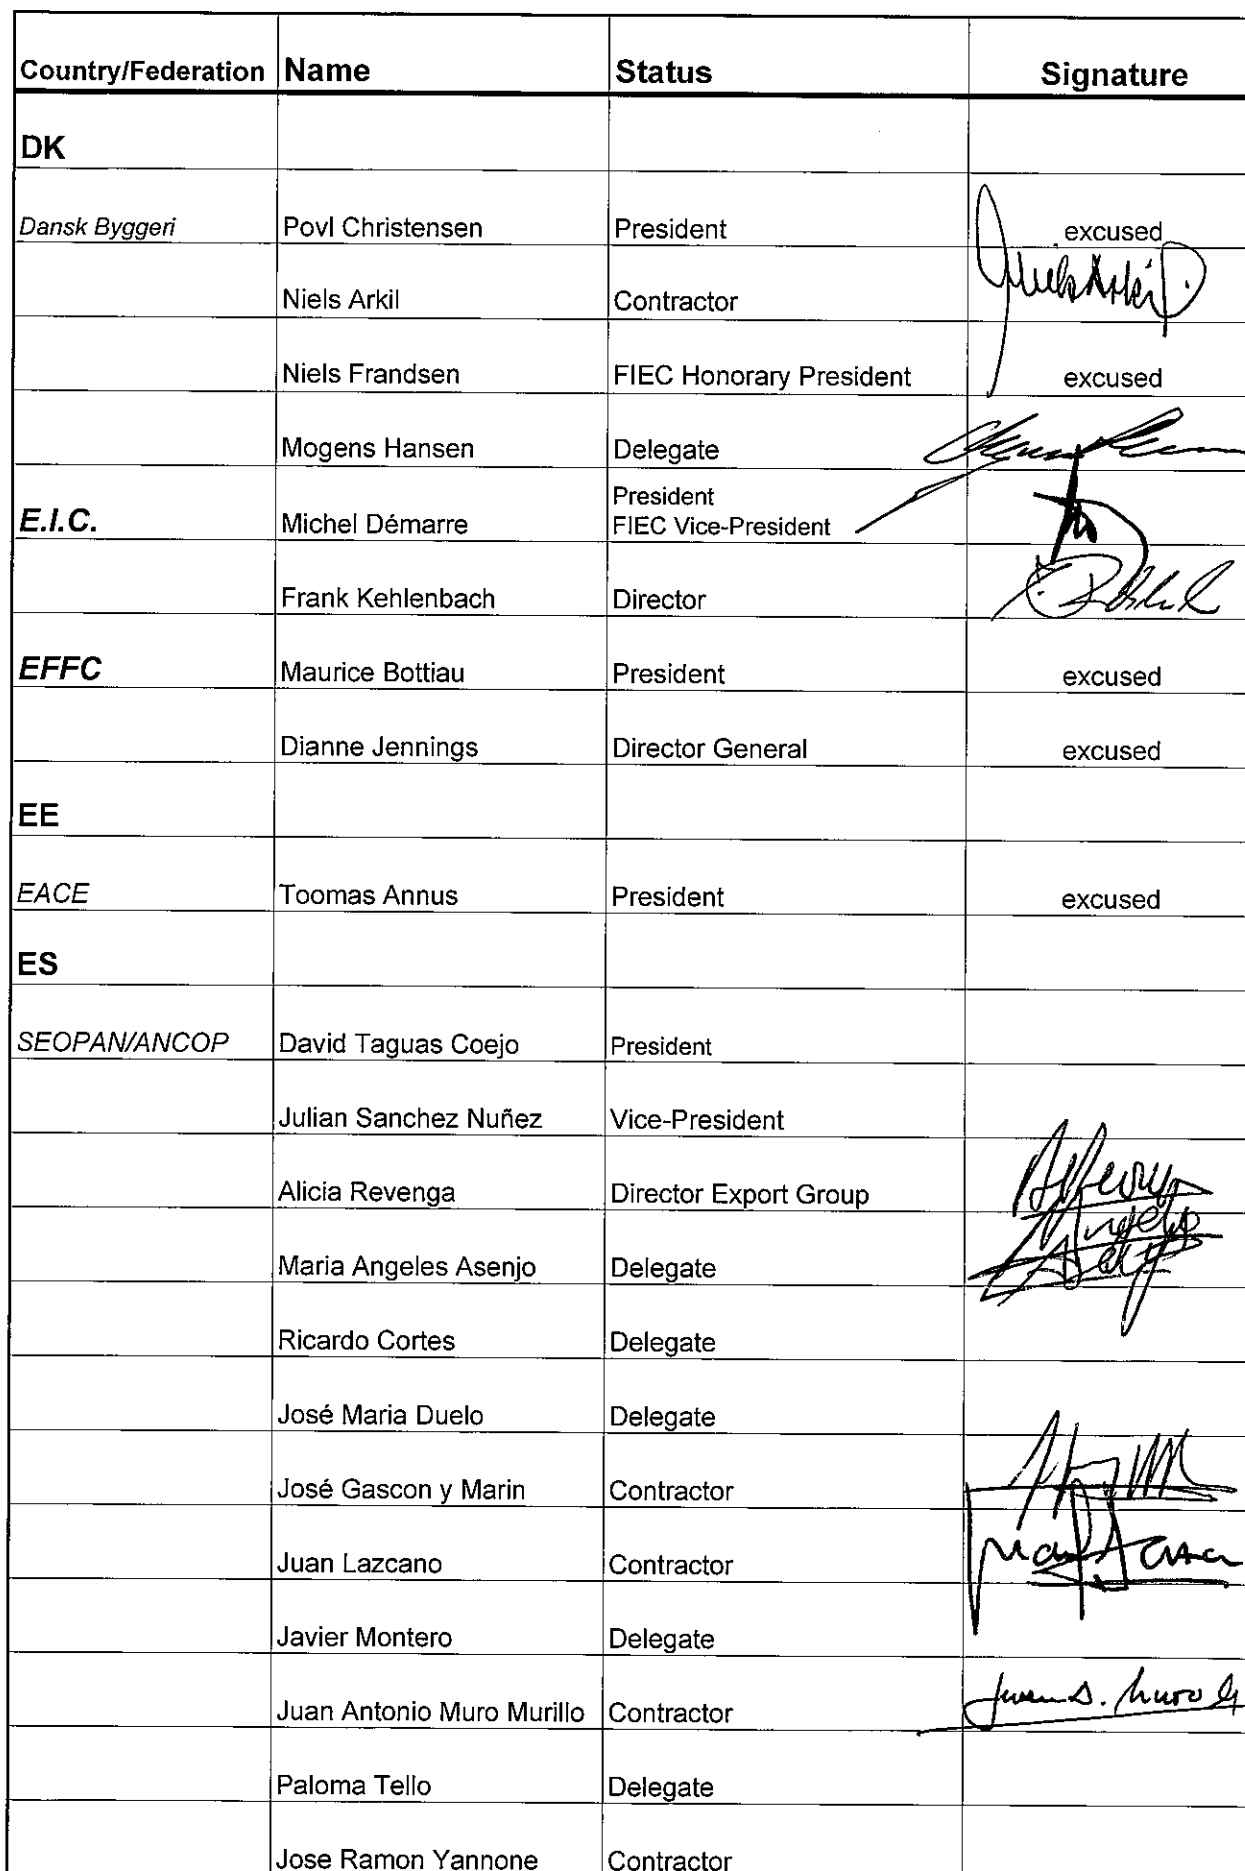 Country/Federation Name Status Signature
DK
Dansk Byggeri Povl Christensen President excused
Niels Arkil Contractor Niels Arkil
Niels Frandsen FIEC Honorary President excused
Mogens Hansen Delegate
President
E.I.C. Michel Démarre FIEC Vice-President
Frank Kehlenbach Director
EFFC Maurice Bottiau President excused
Dianne Jennings Director General excused
EE
EACE Toomas Annus President excused
ES
SEOPAN/ANCOP David Taguas Coejo President
Julian Sanchez Nuñez Vice-President
Alicia Revenga Director Export Group
Maria Angeles Asenjo Delegate
Ricardo Cortes Delegate
José Maria Duelo Delegate
José Gascon y Marin Contractor
Juan Lazcano Contractor
Javier Montero Delegate
Juan Antonio Muro Murillo Contractor Juan A. Muro
Paloma Tello Delegate
Jose Ramon Yannone Contractor